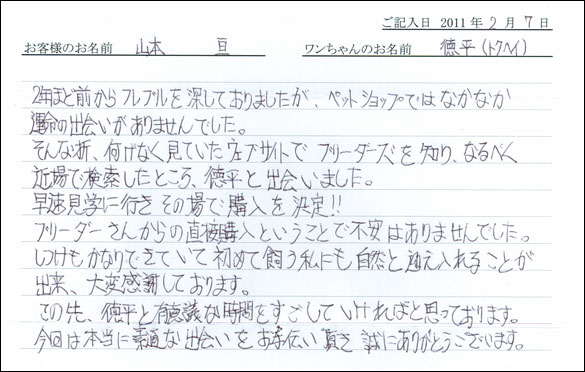 ご記入日 2011年2月7日
お客様のお名前 山本 亘 ワンちゃんのお名前 徳平(トクヘイ)
2年ほど前からフレブルを探しておりましたが、ペットショップではなかなか
運命の出会いがありませんでした。
そんな折、何げなく見ていたウェブサイトでブリーダーズを知り、なるべく
近場で検索したところ、徳平と出会いました。
早速見学に行きその場で購入を決定!!
ブリーダーさんからの直接購入ということで不安はありませんでした。
しつけもかなりできていて初めて飼う私にも自然と迎え入れることが
出来、大変感謝しております。
この先、徳平と有意義な時間をすごしていければと思っております。
今回は本当に素適な出会いをお手伝い頂き誠にありがとうございます。